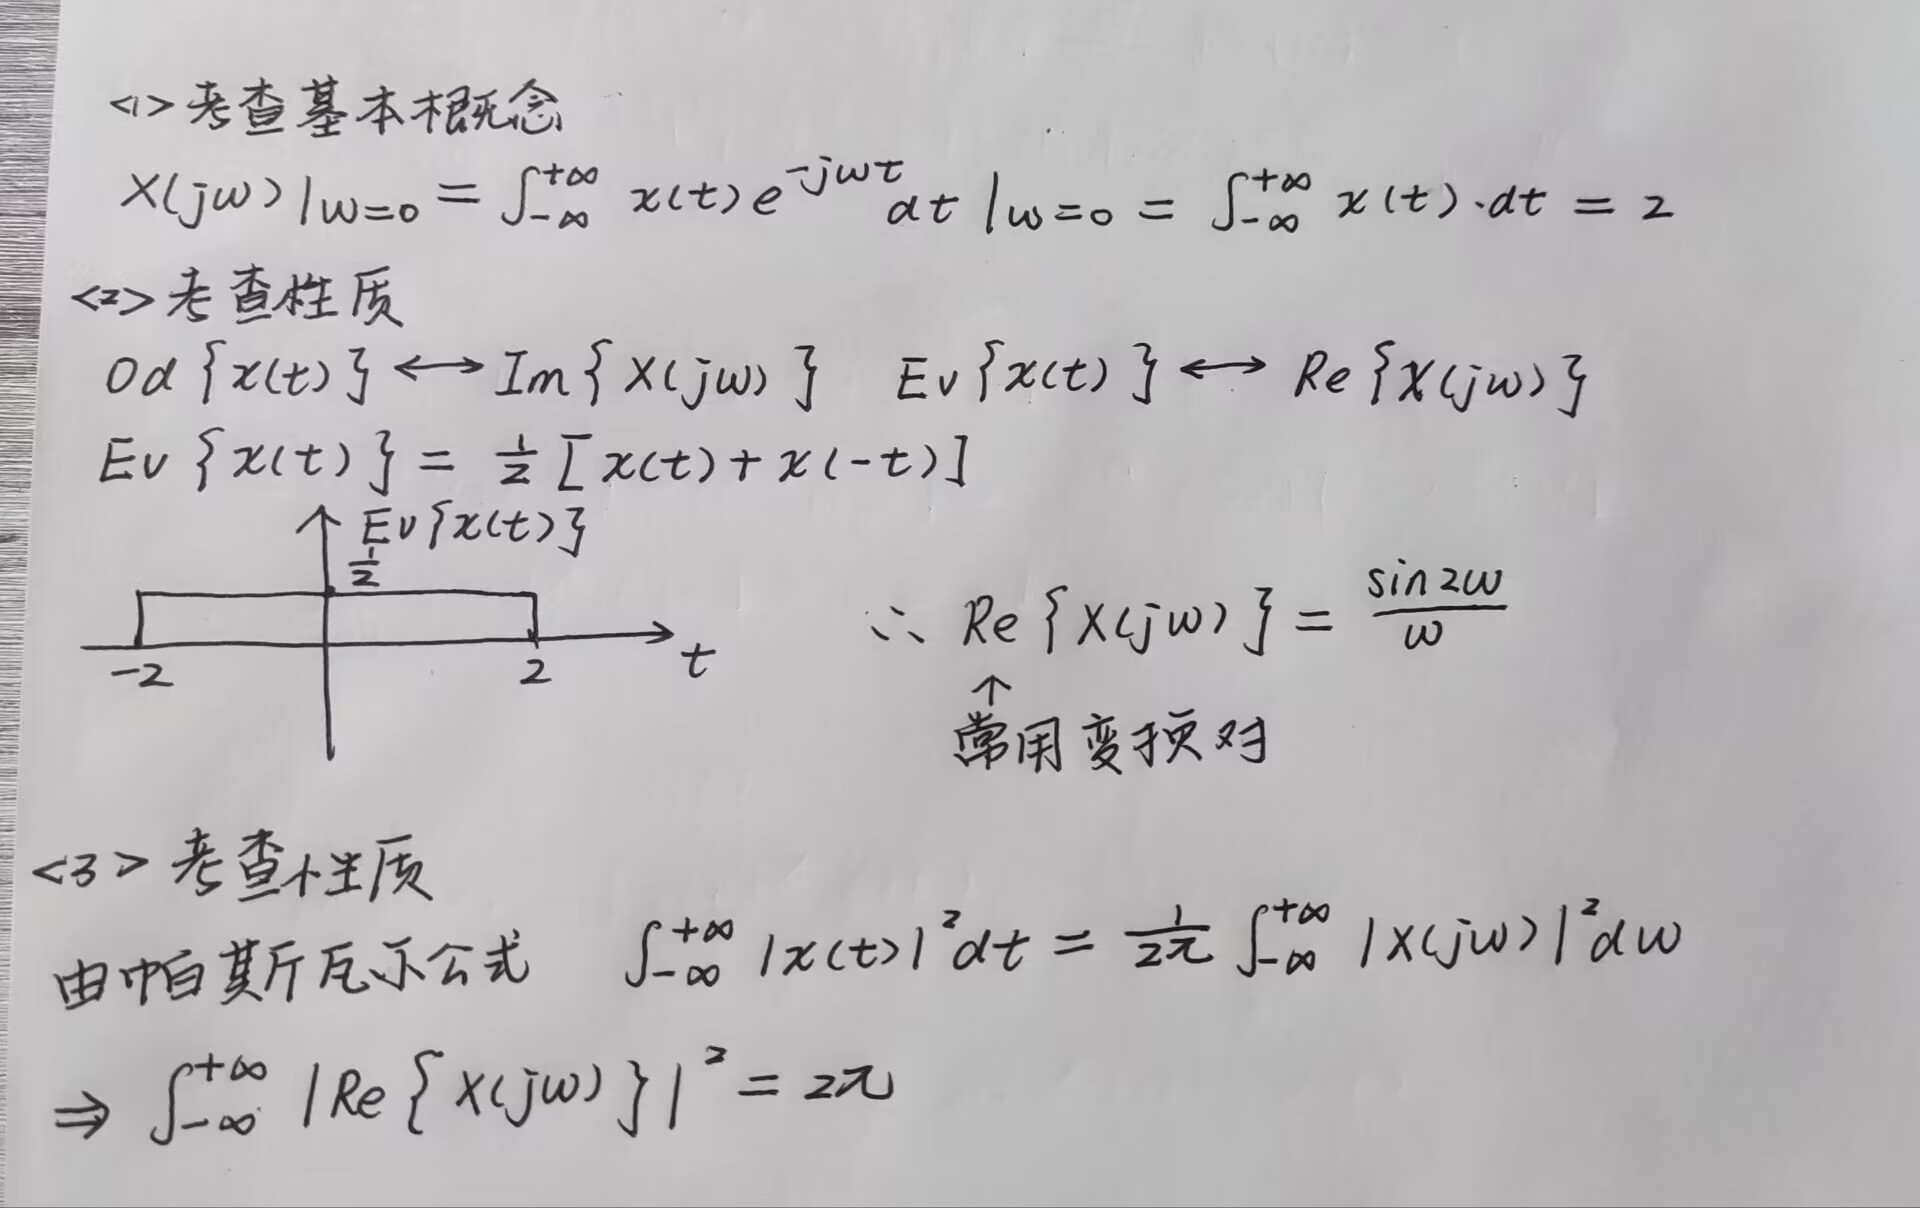 <1>考查基本概念
X(jω)|ω=0 = ∫_{-∞}^{+∞} x(t)e^{-jωt}dt |ω=0 = ∫_{-∞}^{+∞} x(t)·dt = 2
<2>考查性质
Od{x(t)} ⟷ Im{X(jω)} Ev{x(t)} ⟷ Re{X(jω)}
Ev{x(t)} = 1/2 [x(t)+x(-t)]
Ev{x(t)}
1/2
-2 2 t
∴ Re{X(jω)} = sin2ω/ω
↑
常用变换对
<3>考查性质
由帕斯瓦尔公式 ∫_{-∞}^{+∞} |x(t)|²dt = 1/2π ∫_{-∞}^{+∞} |X(jω)|²dω
⇒ ∫_{-∞}^{+∞} |Re{X(jω)}|² = 2π